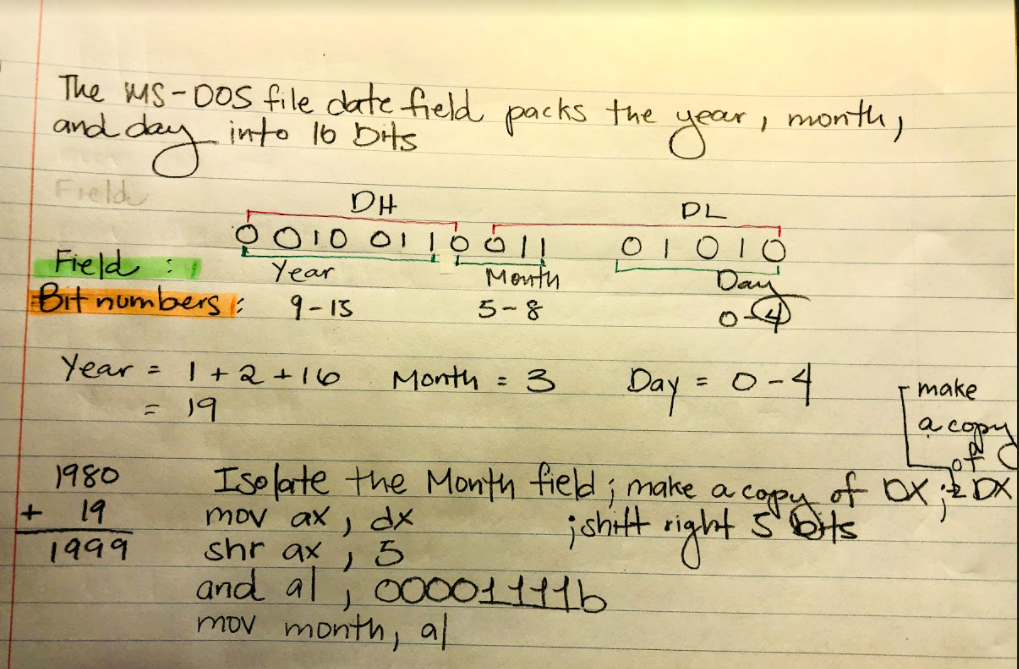 The MS-DOS file date field packs the year, month,
and day into 16 bits
Field
DH DL
0 0 1 0 0 1 1 0 0 1 1 0 1 0 1 0
Field : Year Month Day
Bit numbers : 9-15 5-8 0-4
Year = 1 + 2 + 16 Month = 3 Day = 0-4
= 19
make
a copy
of
1980 Isolate the Month field ; make a copy of DX ; DX
+ 19 mov ax, dx ; shift right 5 bits
1999 shr ax, 5
and al, 00001111b
mov month, al